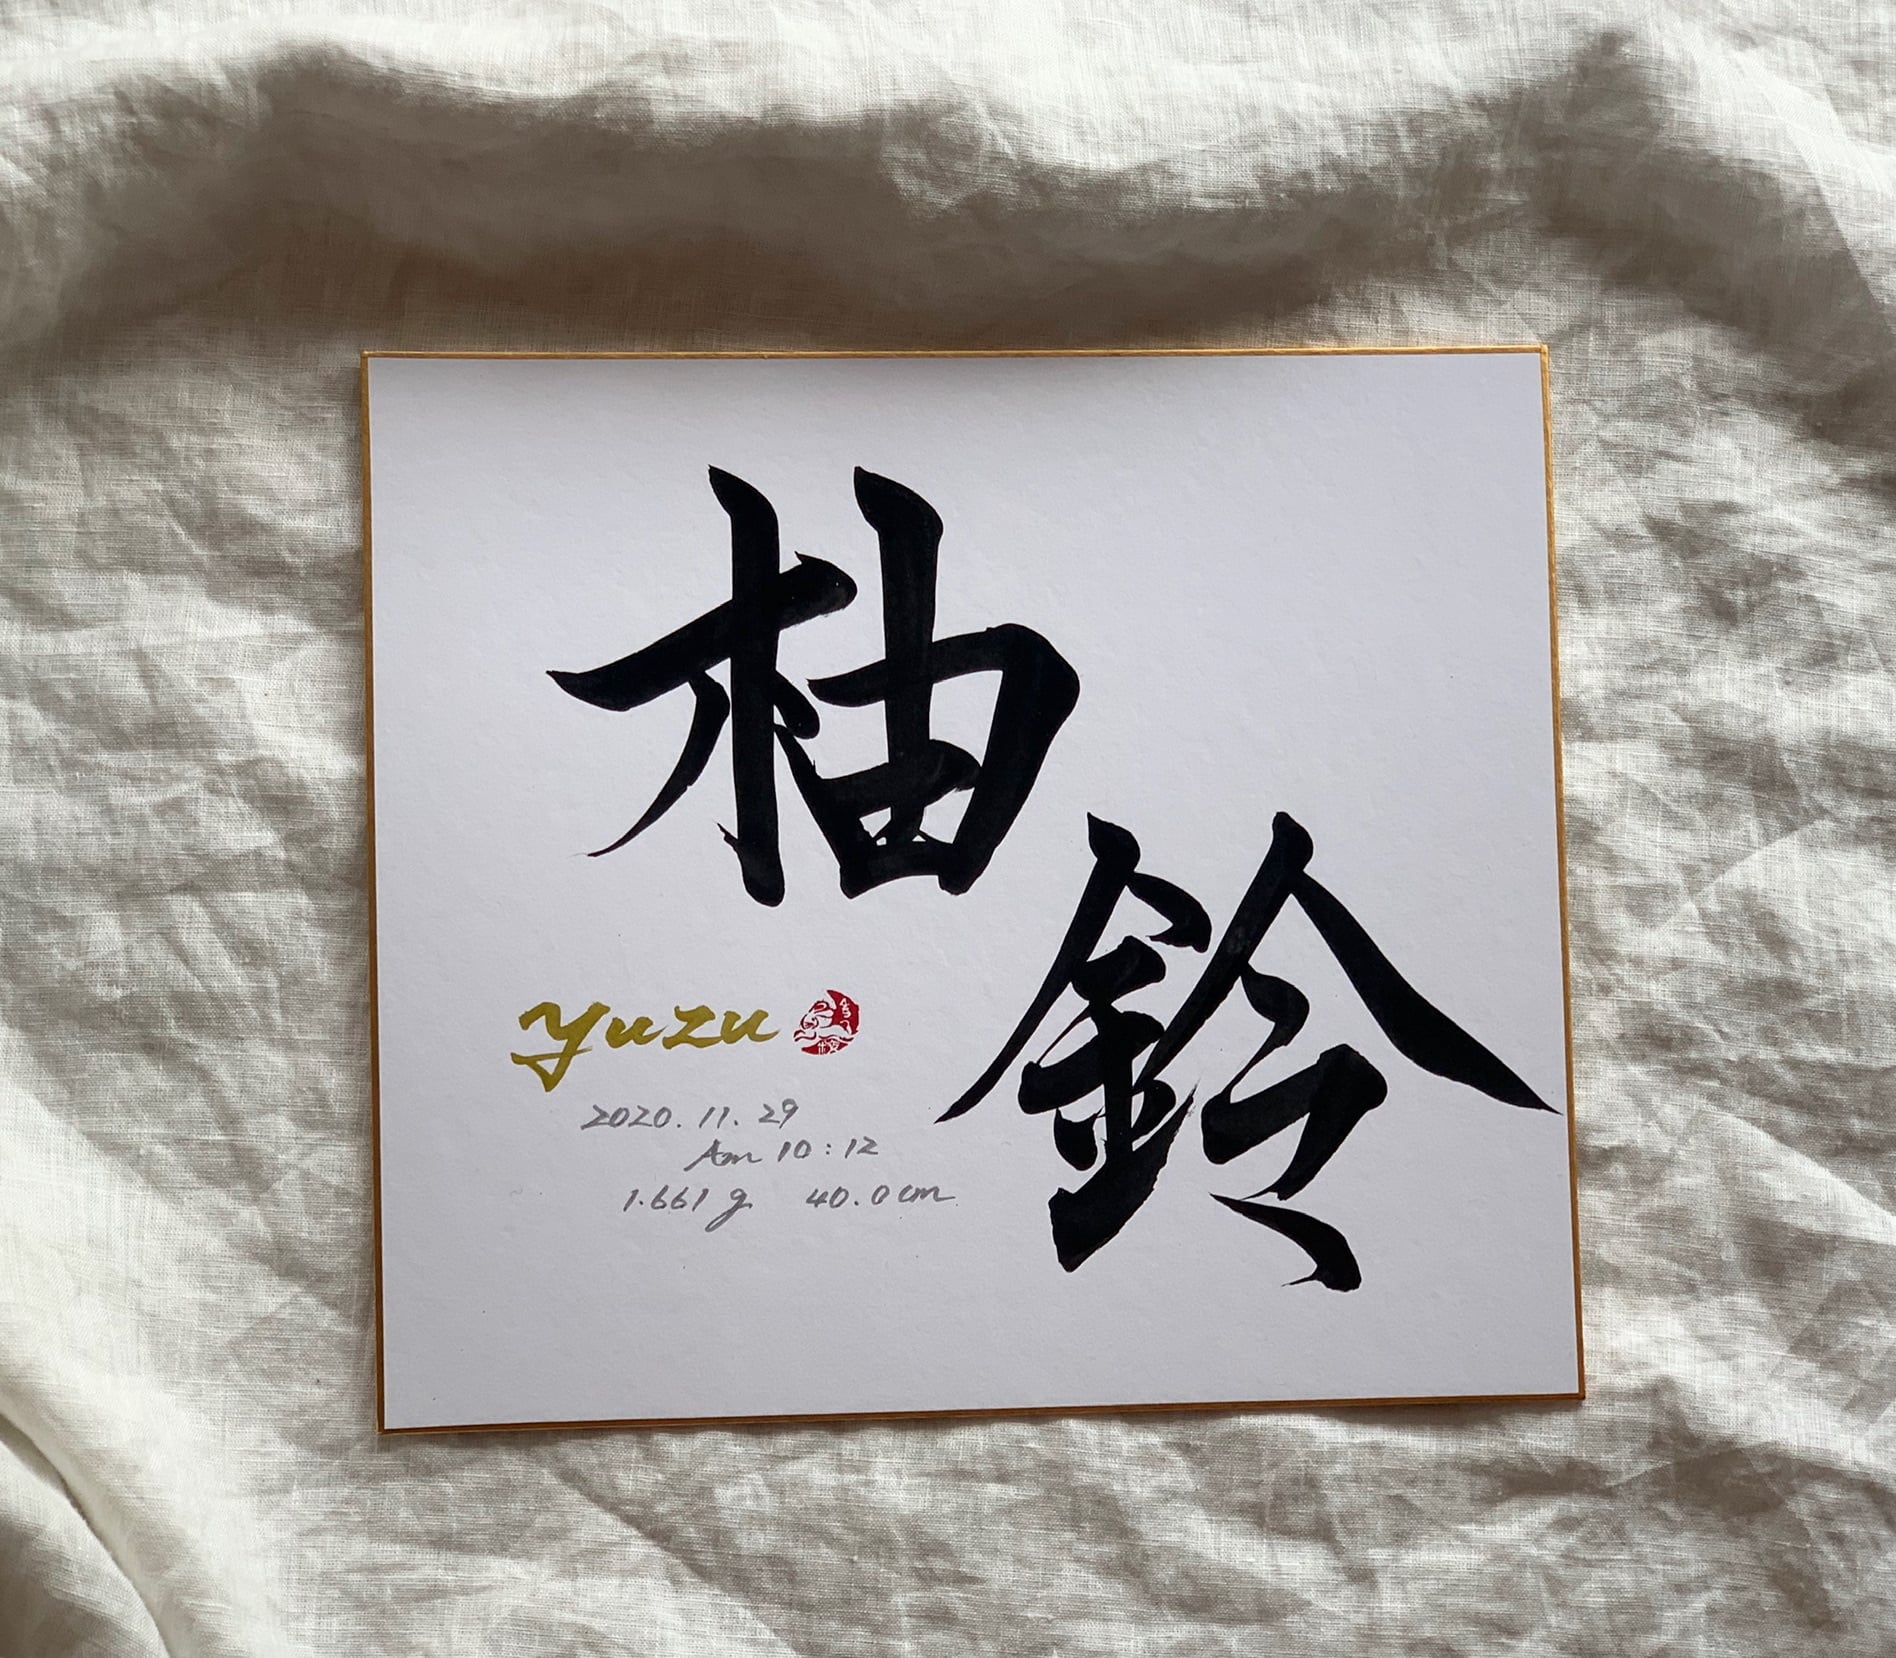 柚鈴
yuzu
2020.11.29
Am 10:12
1.661g 40.0cm